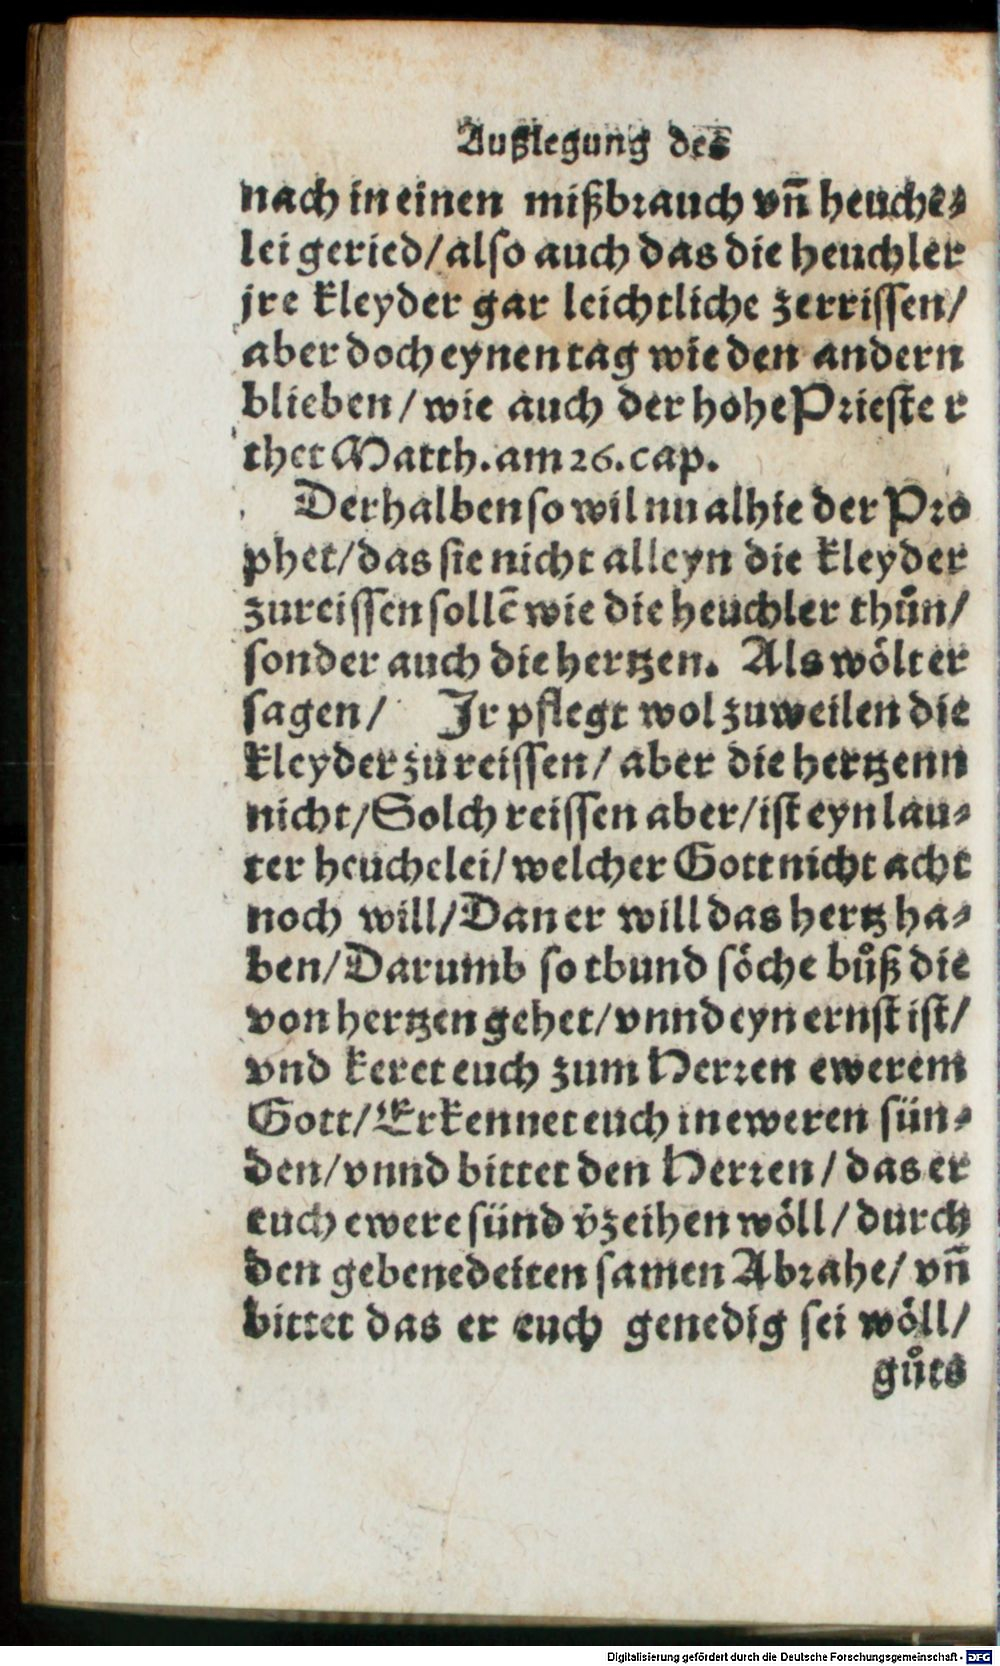 Außlegung des
nach in einen mißbrauch vn̄ heuche⸗
lei geried/ also auch das die heuchler
jre kleyder gar leichtliche zerrissen/
aber doch eynen tag wie den andern
blieben/ wie auch der hohe Priester
thet Matth. am 26. cap.
Derhalben so wil nu alhie der Pro
phet/ das sie nicht alleyn die kleyder
zureissen sollē wie die heuchler thůn/
sonder auch die hertzen. Als wölt er
sagen/ Ir pflegt wol zuweilen die
kleyder zu reissen/ aber die hertzenn
nicht/ Solch reissen aber/ ist eyn lau⸗
ter heuchelei/ welcher Gott nicht acht
noch will/ Dan er will das hertz ha⸗
ben/ Darumb so tbund söche bůß die
von hertzen gehet/ vnnd eyn ernst ist/
vnd keret euch zum Herren ewerem
Gott/ Erkennet euch in eweren sün⸗
den/ vnnd bittet den Herren/ das er
euch ewere sünd v̄zeihen wöll/ durch
den gebenedeiten samen Abrahe/ vn̄
bittet das er euch genedig sei wöll/
gůts
Digitalisierung gefördert durch die Deutsche Forschungsgemeinschaft - DFG